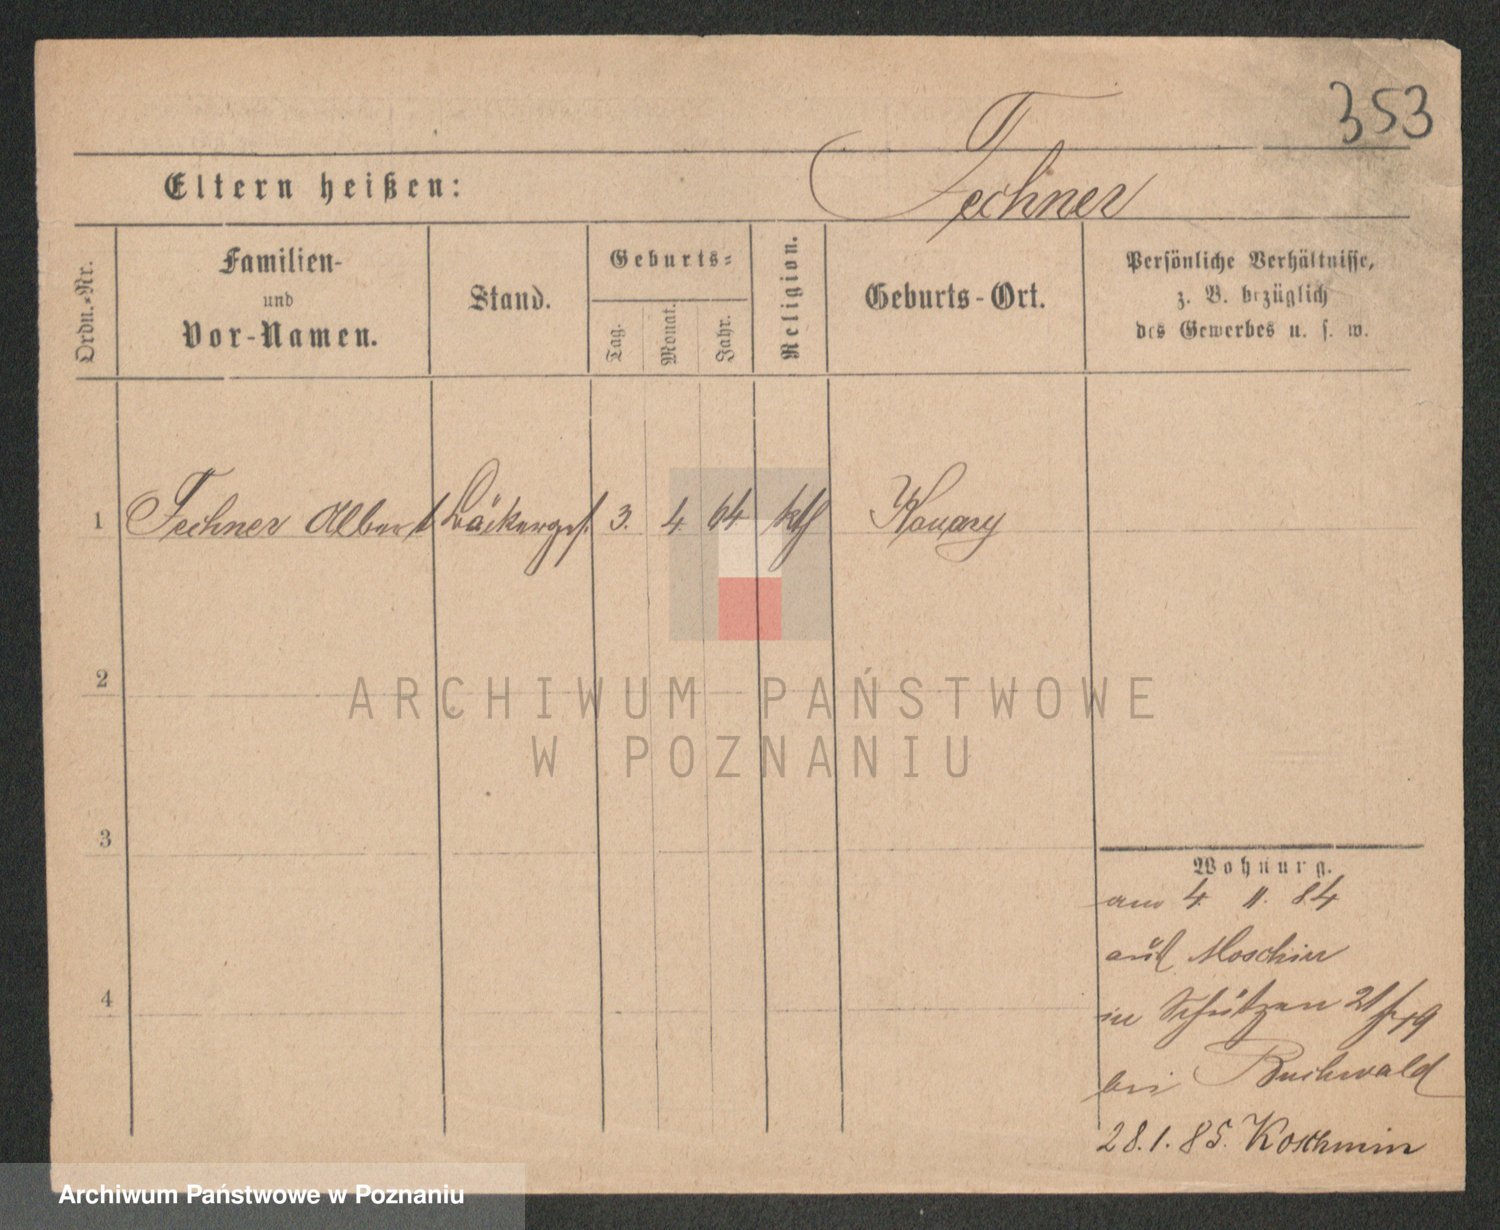 353
Fechner
Eltern heißen:
Ordn.-Nr.
Familien-
und
Vor-Namen.
Stand.
Geburts-
Tag.
Monat.
Jahr.
Religion.
Geburts-Ort.
Persönliche Verhältnisse,
z. B. bezüglich
des Gewerbes u. s. w.
1 Fechner Albert Bäckerges. 3. 4. 64 kth
2
3
4
Wohnung.
am 4. 11. 84
aus Moschin
in Schützen 21
bei Buchwald
28.1.85. Koschmin
ARCHIWUM PAŃSTWOWE
W POZNANIU
Archiwum Państwowe w Poznaniu